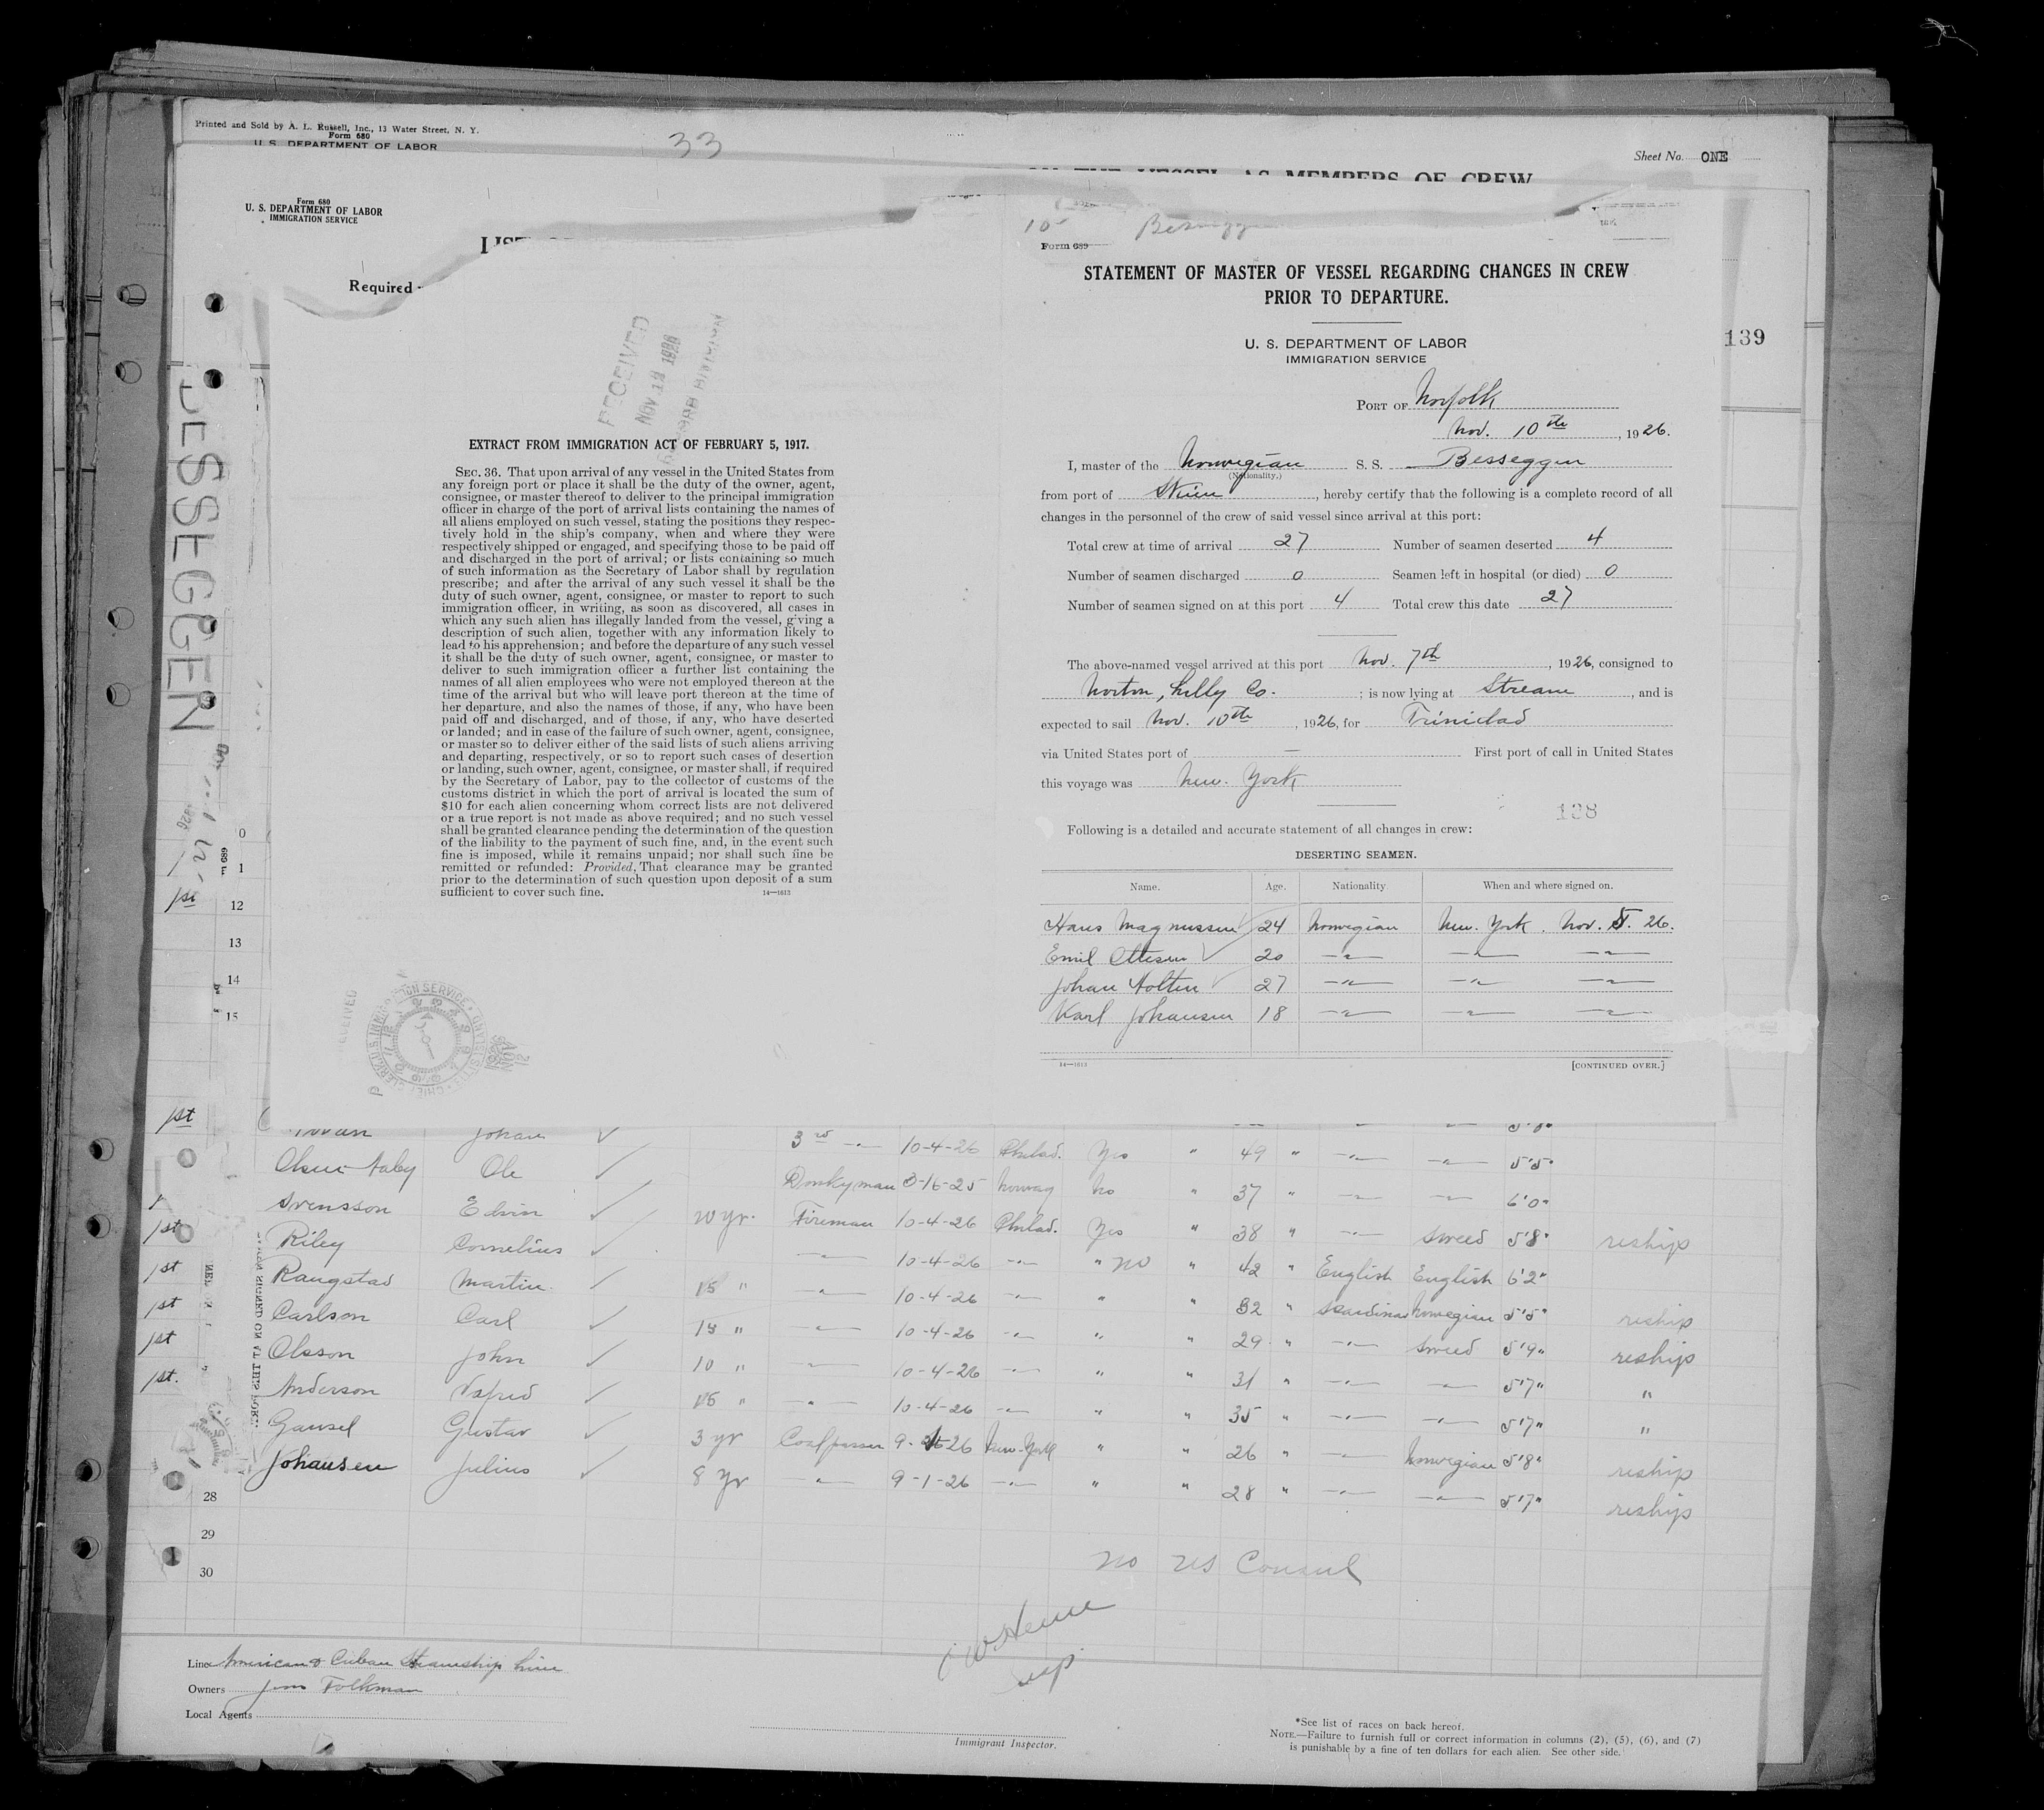 Printed and Sold by A. L. Russell, Inc., 13 Water Street, N. Y.
Form 680
U. S. DEPARTMENT OF LABOR
33
Sheet No. ONE
AS MEMBERS OF CREW
Form 680
U. S. DEPARTMENT OF LABOR
IMMIGRATION SERVICE
Required
139
BESSEGGEN
RECEIVED
NOV 12 1926
EXTRACT FROM IMMIGRATION ACT OF FEBRUARY 5, 1917.
SEC. 36. That upon arrival of any vessel in the United States from
any foreign port or place it shall be the duty of the owner, agent,
consignee, or master thereof to deliver to the principal immigration
officer in charge of the port of arrival lists containing the names of
all aliens employed on such vessel, stating the positions they respec-
tively hold in the ship's company, when and where they were
respectively shipped or engaged, and specifying those to be paid off
and discharged in the port of arrival; or lists containing so much
of such information as the Secretary of Labor shall by regulation
prescribe; and after the arrival of any such vessel it shall be the
duty of such owner, agent, consignee, or master to report to such
immigration officer, in writing, as soon as discovered, all cases in
which any such alien has illegally landed from the vessel, giving a
description of such alien, together with any information likely to
lead to his apprehension; and before the departure of any such vessel
it shall be the duty of such owner, agent, consignee, or master to
deliver to such immigration officer a further list containing the
names of all alien employees who were not employed thereon at the
time of the arrival but who will leave port thereon at the time of
her departure, and also the names of those, if any, who have been
paid off and discharged, and of those, if any, who have deserted
or landed; and in case of the failure of such owner, agent, consignee,
or master so to deliver either of the said lists of such aliens arriving
and departing, respectively, or so to report such cases of desertion
or landing, such owner, agent, consignee, or master shall, if required
by the Secretary of Labor, pay to the collector of customs of the
customs district in which the port of arrival is located the sum of
$10 for each alien concerning whom correct lists are not delivered
or a true report is not made as above required; and no such vessel
shall be granted clearance pending the determination of the question
of the liability to the payment of such fine, and, in the event such
fine is imposed, while it remains unpaid; nor shall such fine be
remitted or refunded: Provided, That clearance may be granted
prior to the determination of such question upon deposit of a sum
sufficient to cover such fine.
14—1613
Form 689
STATEMENT OF MASTER OF VESSEL REGARDING CHANGES IN CREW
PRIOR TO DEPARTURE.
U. S. DEPARTMENT OF LABOR
IMMIGRATION SERVICE
PORT OF Norfolk
Nov. 10th, 1926.
I, master of the Norwegian S. S. Besseggen
(Nationality.)
from port of Skien, hereby certify that the following is a complete record of all
changes in the personnel of the crew of said vessel since arrival at this port:
Total crew at time of arrival 27 Number of seamen deserted 4
Number of seamen discharged 0 Seamen left in hospital (or died) 0
Number of seamen signed on at this port 4 Total crew this date 27
The above-named vessel arrived at this port Nov. 7th, 1926, consigned to
Norton, Lilly Co. ; is now lying at Stream, and is
expected to sail Nov. 10th, 1926, for Trinidad
via United States port of — First port of call in United States
this voyage was New. York
138
Following is a detailed and accurate statement of all changes in crew:
DESERTING SEAMEN.
Name. Age. Nationality. When and where signed on.
Hans Magnussen 24 Norwegian New. York. Nov. 5. 26.
Emil Ottesen 20 —"— —"— —"—
Johan Holten 27 —"— —"— —"—
Karl Johansen 18 —"— —"— —"—
14—1613
[CONTINUED OVER.]
0
1
1st 12
13
14
15
1st Johan 3rd —"— 10-4-26 Philad. Yes " 49 " —"— —"— 5'5"
Olsen Aaby Ole Donkyman 3-16-25 Norway No " 37 " —"— —"— 6'0"
Svensson Edvin 20 yr. Fireman 10-4-26 Philad. Yes " 38 " —"— Sweed 5'8" reship
1st Riley Cornelius —"— 10-4-26 —"— " no " 42 " English English 6'2"
1st Raugstad Martin 15 " —"— 10-4-26 —"— " " 32 " Scandinav Norwegian 5'5" reship
1st Carlson Carl 15 " —"— 10-4-26 —"— " " 29 " —"— Sweed 5'9" reship
1st Olsson John 10 " —"— 10-4-26 —"— " " 31 " —"— —"— 5'7" "
1st. Anderson Valfred 15 " —"— 10-4-26 —"— " " 35 " —"— —"— 5'7" "
Gausel Gustav 3 yr Coalpasser New-York " " 26 " —"— Norwegian 5'8" reship
Johansen Julius 8 yr —"— 9-1-26 —"— " " 28 " —"— —"— 5'7" reship
28
29
30
No US Consul
Line American & Cuban Steamship Line
Owners Jens Folkman
Local Agents
Immigrant Inspector.
*See list of races on back hereof.
NOTE.—Failure to furnish full or correct information in columns (2), (5), (6), and (7)
is punishable by a fine of ten dollars for each alien. See other side.